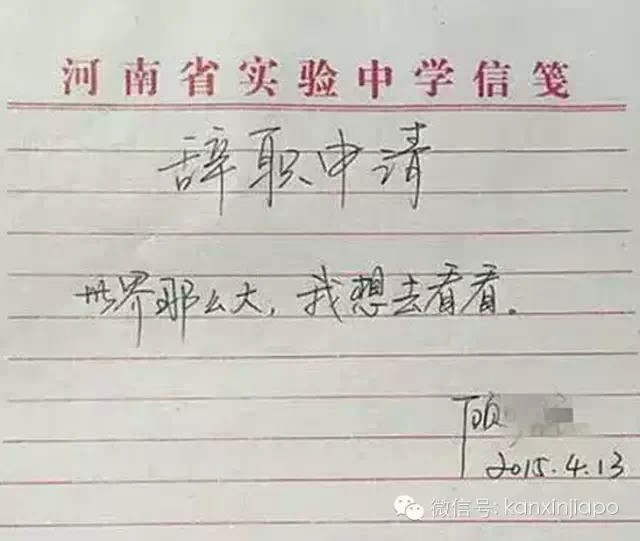 河南省实验中学信笺
辞职申请
世界那么大，我想去看看。
顾
2015.4.13
微信号: kanxinjiapo